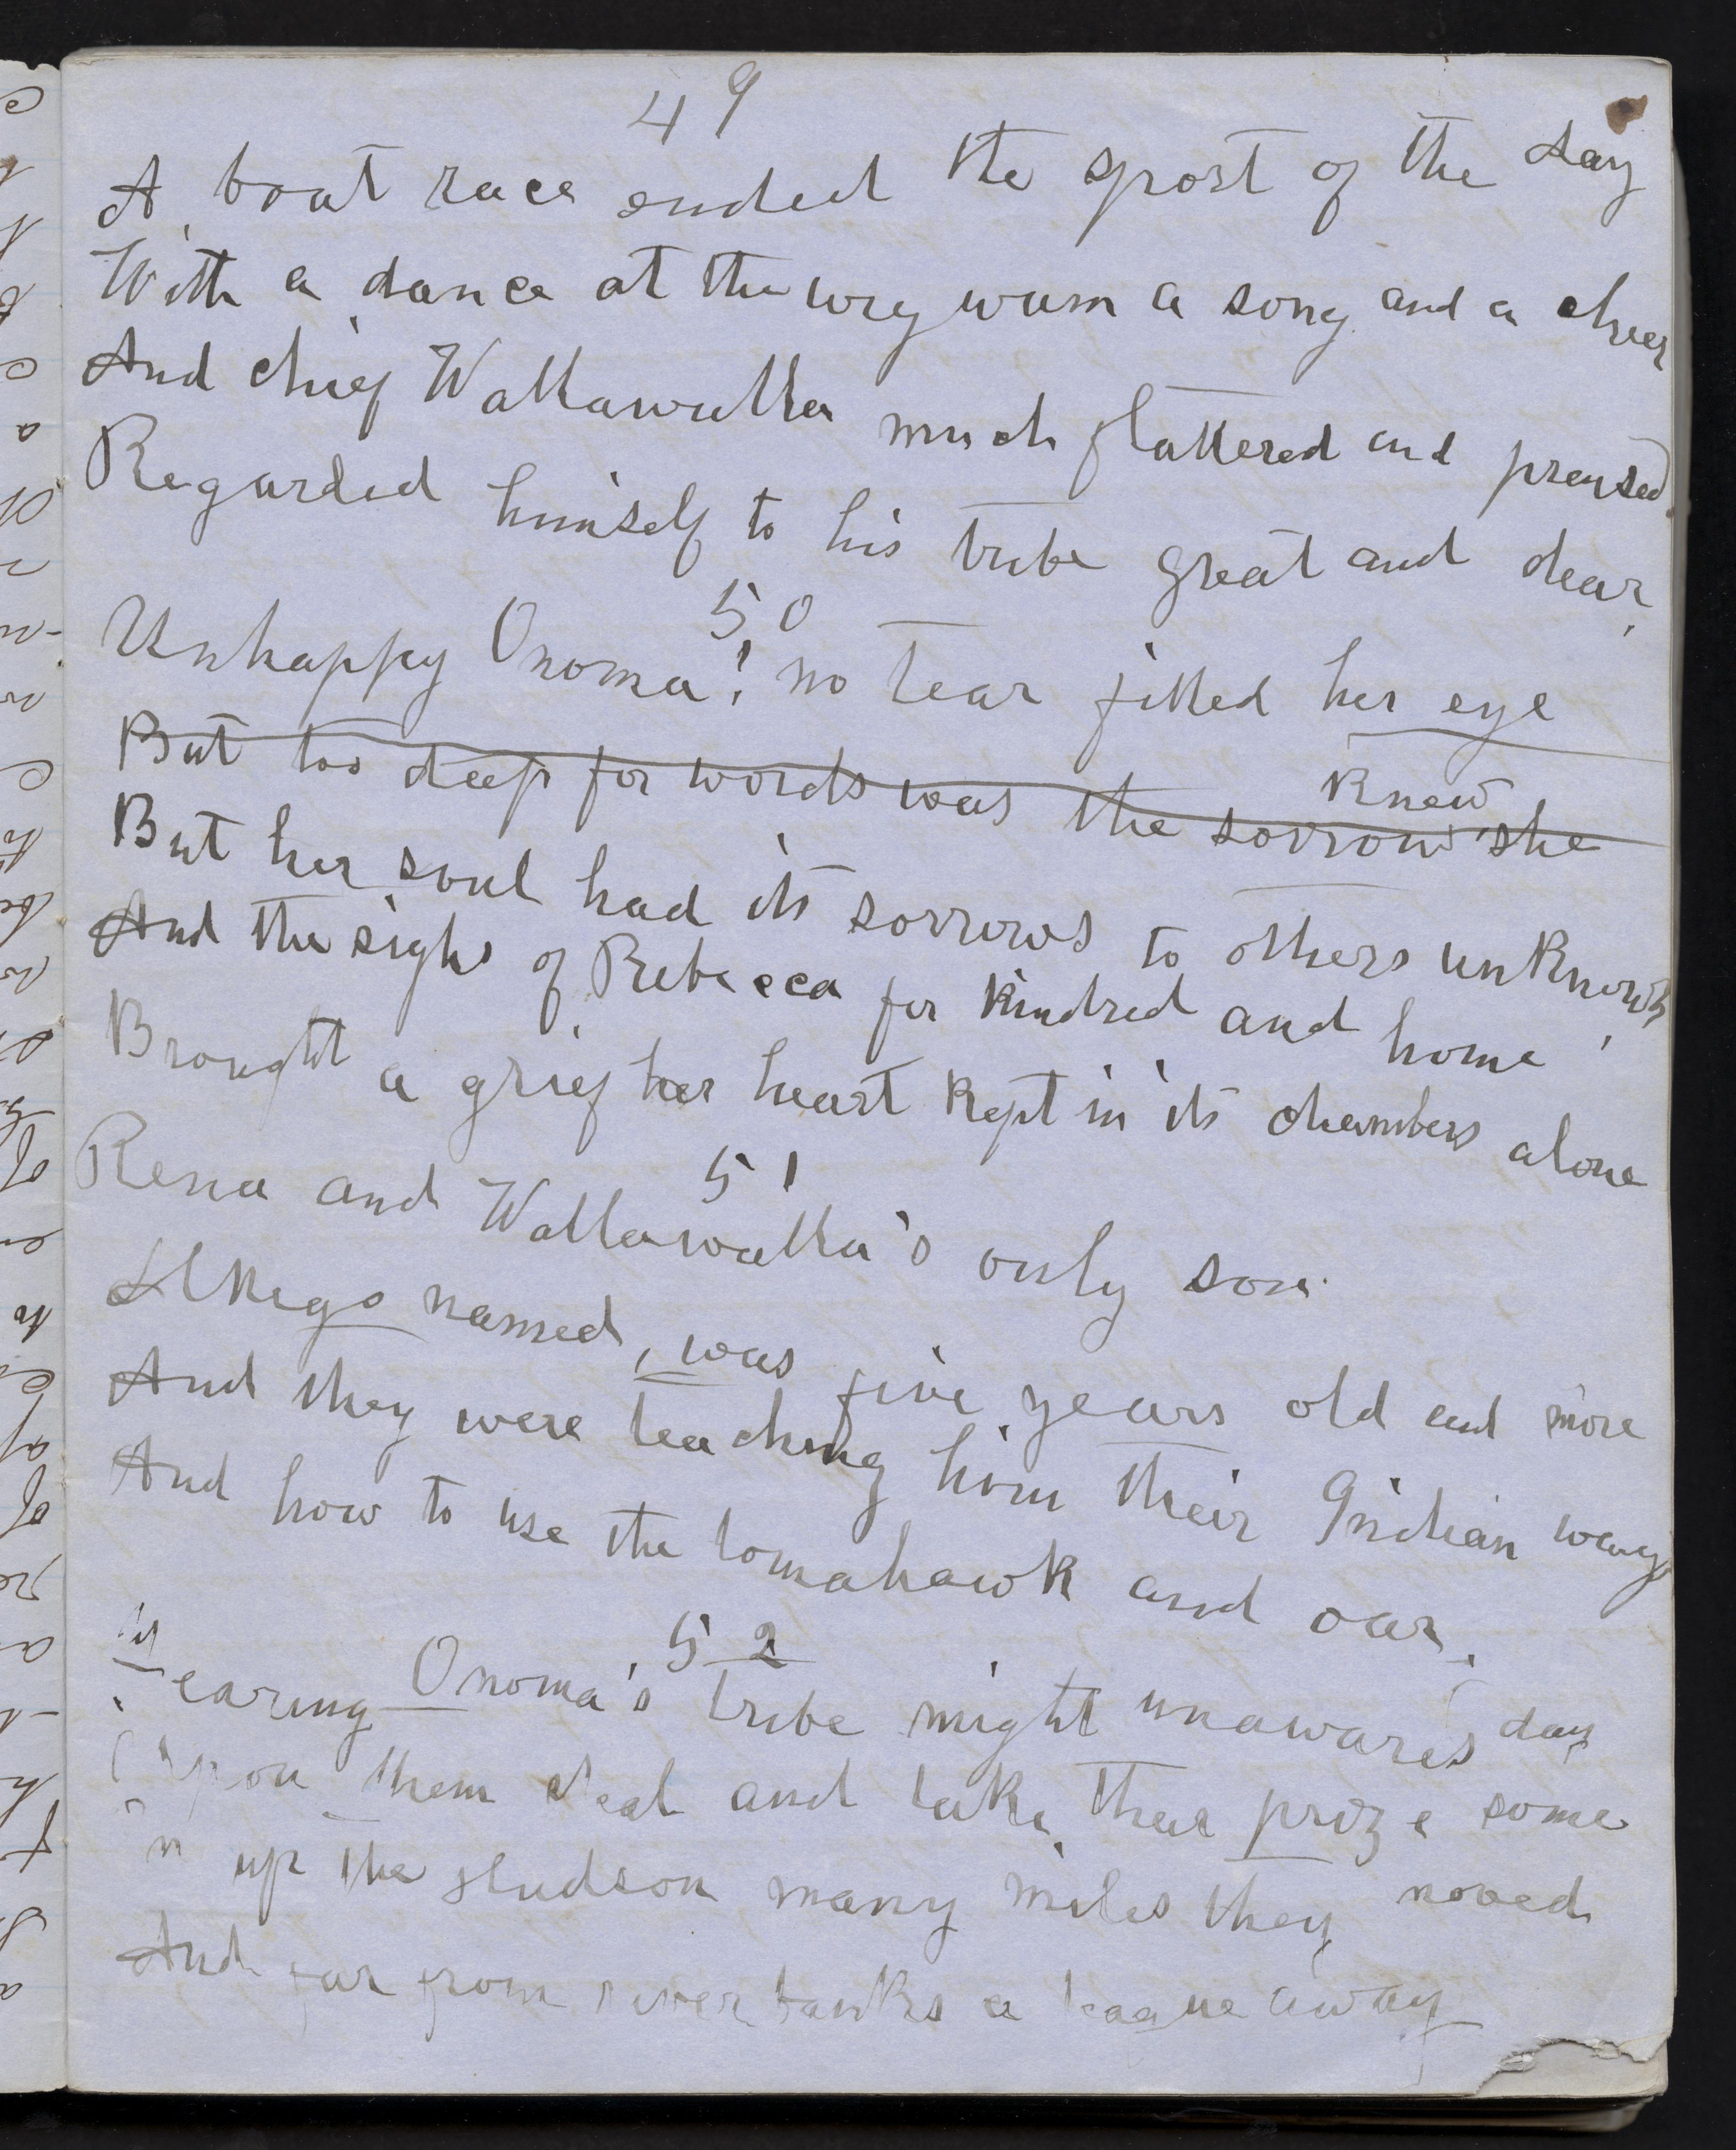 49
A boat race ended the sport of the day
With a dance at the wigwam a song and a cheer
And chief Wallawalla much flattered and praised
Regarded himself to his tribe great and dear,
50
Unhappy Onoma! no tear filled her eye
But too deep for words was the sorrow she knew
But her soul had its sorrows to others unknown,
And the sighs of Rebecca for kindred and home
Brought a grief her heart kept in its chambers alone
51
Rena and Wallawalla's only son
named, was five years old and more
And they were teaching him their Indian ways
And how to use the tomahawk and oar,
52
Fearing Onoma's tribe might unawares
Upon them steal and take their prize some day
up the Hudson many miles they moved
And far from river banks a league away